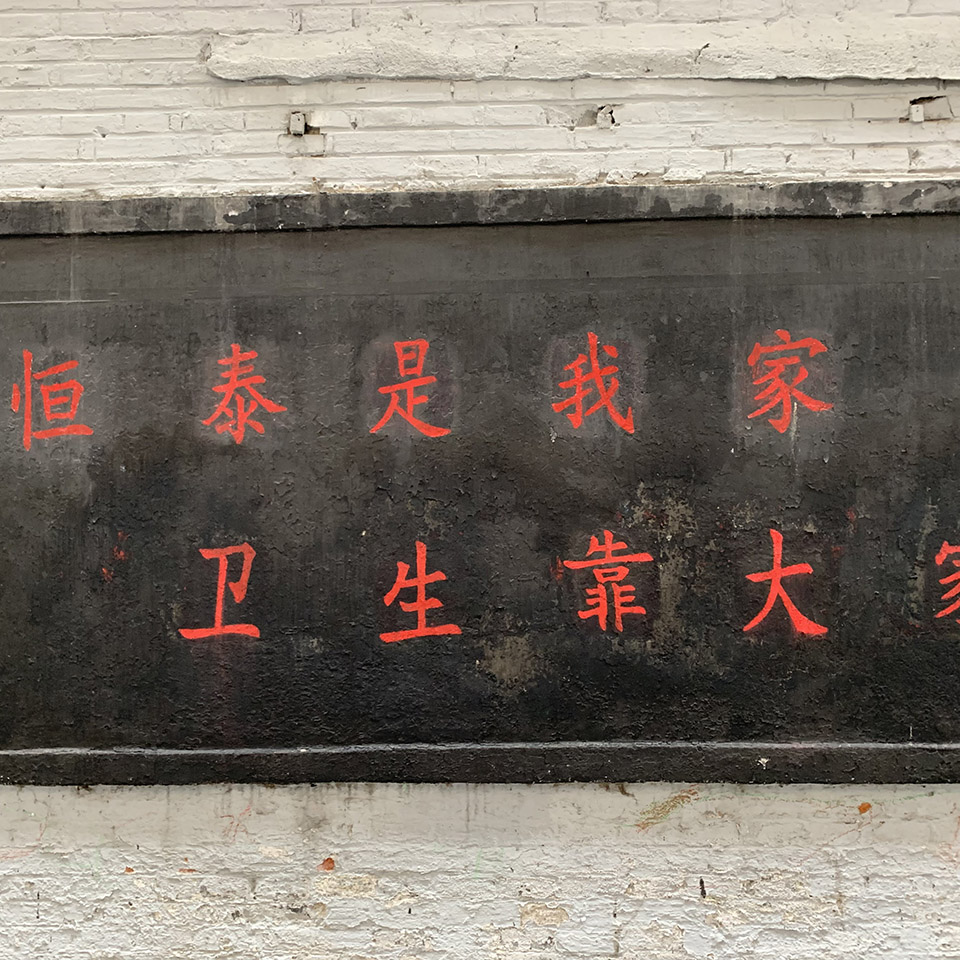 恒泰是我家
卫生靠大家